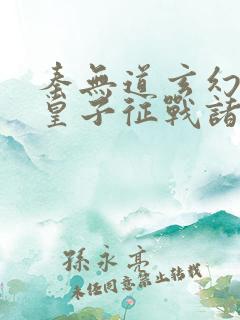 秦無道玄幻
皇子征戰諸
孫永亮
未經同意禁止轉載